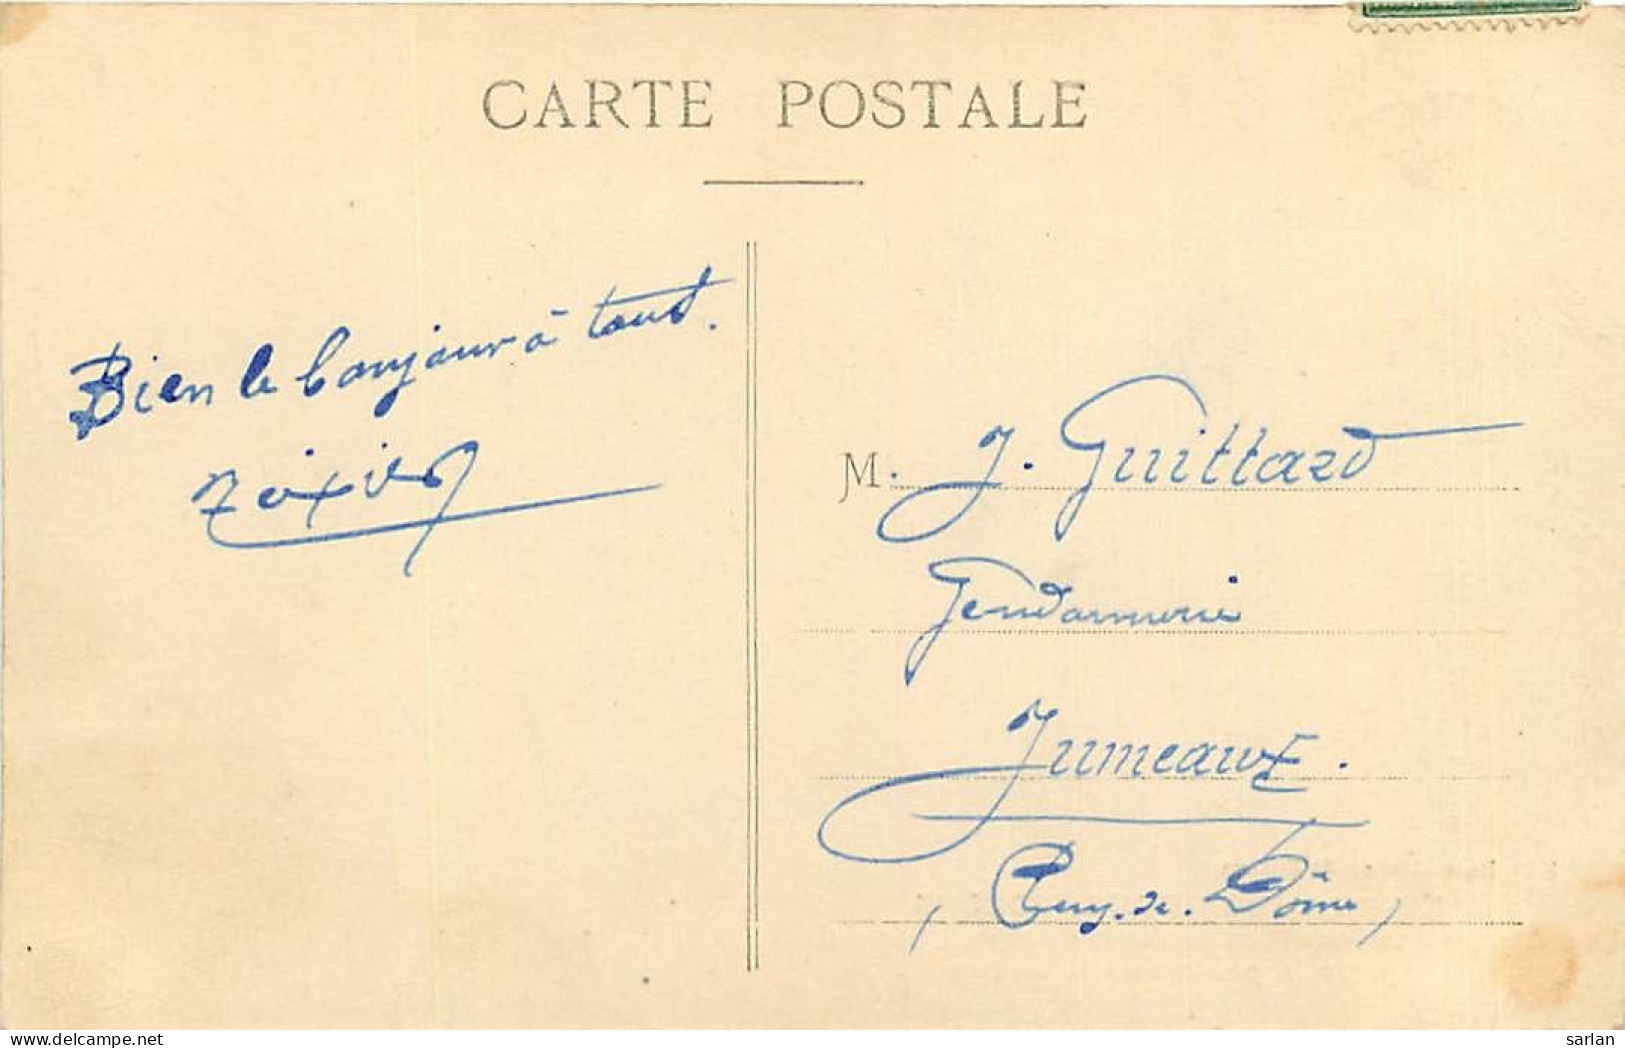 CARTE POSTALE
Bien le bonjour à tous.
Teixier
M. J. Guittard
Gendarmerie
Jumeaux.
(Puy-de-Dôme)
delcampe.net
sarlan